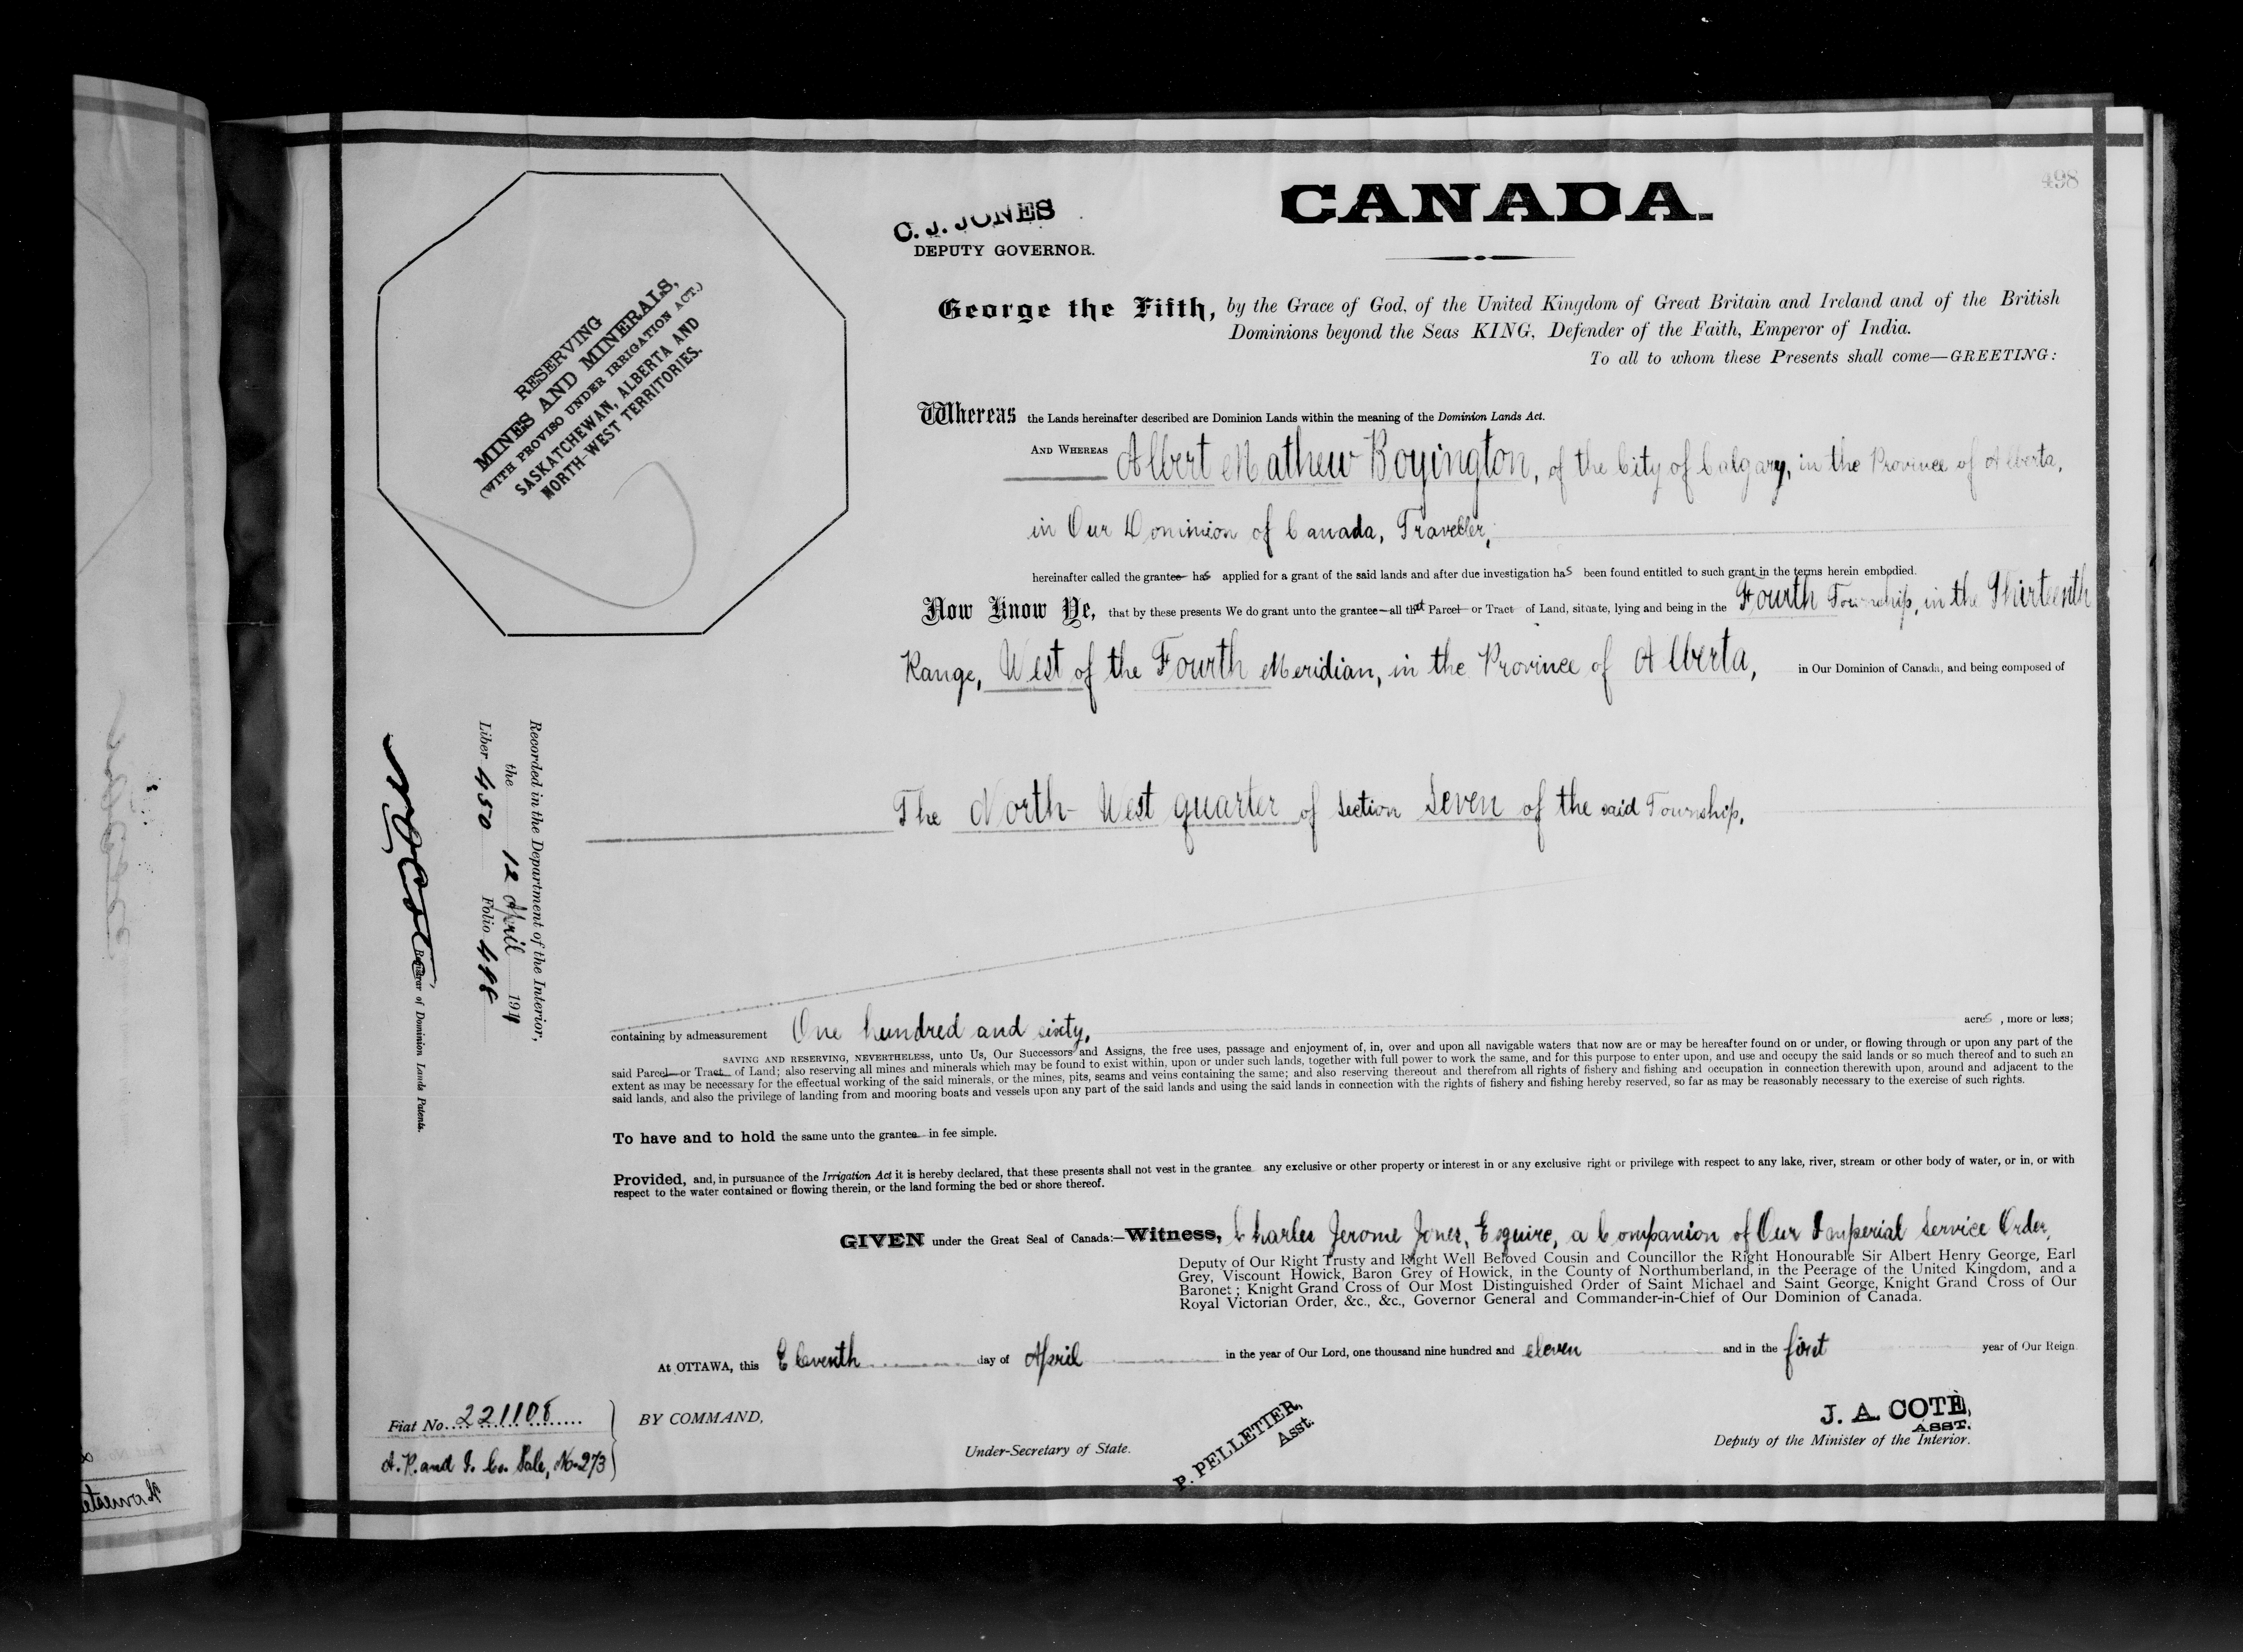 498
CANADA.
C. J. JONES
DEPUTY GOVERNOR.
RESERVING
MINES AND MINERALS,
(WITH PROVISO UNDER IRRIGATION ACT.)
SASKATCHEWAN, ALBERTA AND
NORTH-WEST TERRITORIES.
George the Fifth, by the Grace of God, of the United Kingdom of Great Britain and Ireland and of the British
Dominions beyond the Seas KING, Defender of the Faith, Emperor of India.
To all to whom these Presents shall come—GREETING:
Whereas the Lands hereinafter described are Dominion Lands within the meaning of the Dominion Lands Act.
AND WHEREAS Albert Mathew Boyington, of the City of Calgary, in the Province of Alberta,
in Our Dominion of Canada, Traveller,
hereinafter called the grantee has applied for a grant of the said lands and after due investigation has been found entitled to such grant in the terms herein embodied.
Now Know Ye, that by these presents We do grant unto the grantee—all that Parcel or Tract of Land, situate, lying and being in the Fourth Township, in the Thirteenth
Range, West of the Fourth Meridian, in the Province of Alberta, in Our Dominion of Canada, and being composed of
The North-West quarter of section Seven of the said Township.
Recorded in the Department of the Interior,
the 12 April 1911
Liber 450 Folio 498
Registrar of Dominion Lands Patents.
containing by admeasurement One hundred and sixty, acres, more or less;
SAVING AND RESERVING, NEVERTHELESS, unto Us, Our Successors and Assigns, the free uses, passage and enjoyment of, in, over and upon all navigable waters that now are or may be hereafter found on or under, or flowing through or upon any part of the
said Parcel or Tract of Land; also reserving all mines and minerals which may be found to exist within, upon or under such lands, together with full power to work the same, and for this purpose to enter upon, and use and occupy the said lands or so much thereof and to such an
extent as may be necessary for the effectual working of the said minerals, or the mines, pits, seams and veins containing the same; and also reserving thereout and therefrom all rights of fishery and fishing and occupation in connection therewith upon, around and adjacent to the
said lands, and also the privilege of landing from and mooring boats and vessels upon any part of the said lands and using the said lands in connection with the rights of fishery and fishing hereby reserved, so far as may be reasonably necessary to the exercise of such rights.
To have and to hold the same unto the grantee in fee simple.
Provided, and, in pursuance of the Irrigation Act it is hereby declared, that these presents shall not vest in the grantee any exclusive or other property or interest in or any exclusive right or privilege with respect to any lake, river, stream or other body of water, or in, or with
respect to the water contained or flowing therein, or the land forming the bed or shore thereof.
GIVEN under the Great Seal of Canada:—Witness, Charles Jerome Jones, Esquire, a Companion of Our Imperial Service Order,
Deputy of Our Right Trusty and Right Well Beloved Cousin and Councillor the Right Honourable Sir Albert Henry George, Earl
Grey, Viscount Howick, Baron Grey of Howick, in the County of Northumberland, in the Peerage of the United Kingdom, and a
Baronet; Knight Grand Cross of Our Most Distinguished Order of Saint Michael and Saint George, Knight Grand Cross of Our
Royal Victorian Order, &c., &c., Governor General and Commander-in-Chief of Our Dominion of Canada.
At OTTAWA, this Eleventh day of April in the year of Our Lord, one thousand nine hundred and eleven and in the first year of Our Reign
Fiat No. 221108
A. R. and I. Co. Sale, No. 273
BY COMMAND,
P. PELLETIER,
Asst.
Under-Secretary of State.
J. A. COTÉ,
ASST.
Deputy of the Minister of the Interior.